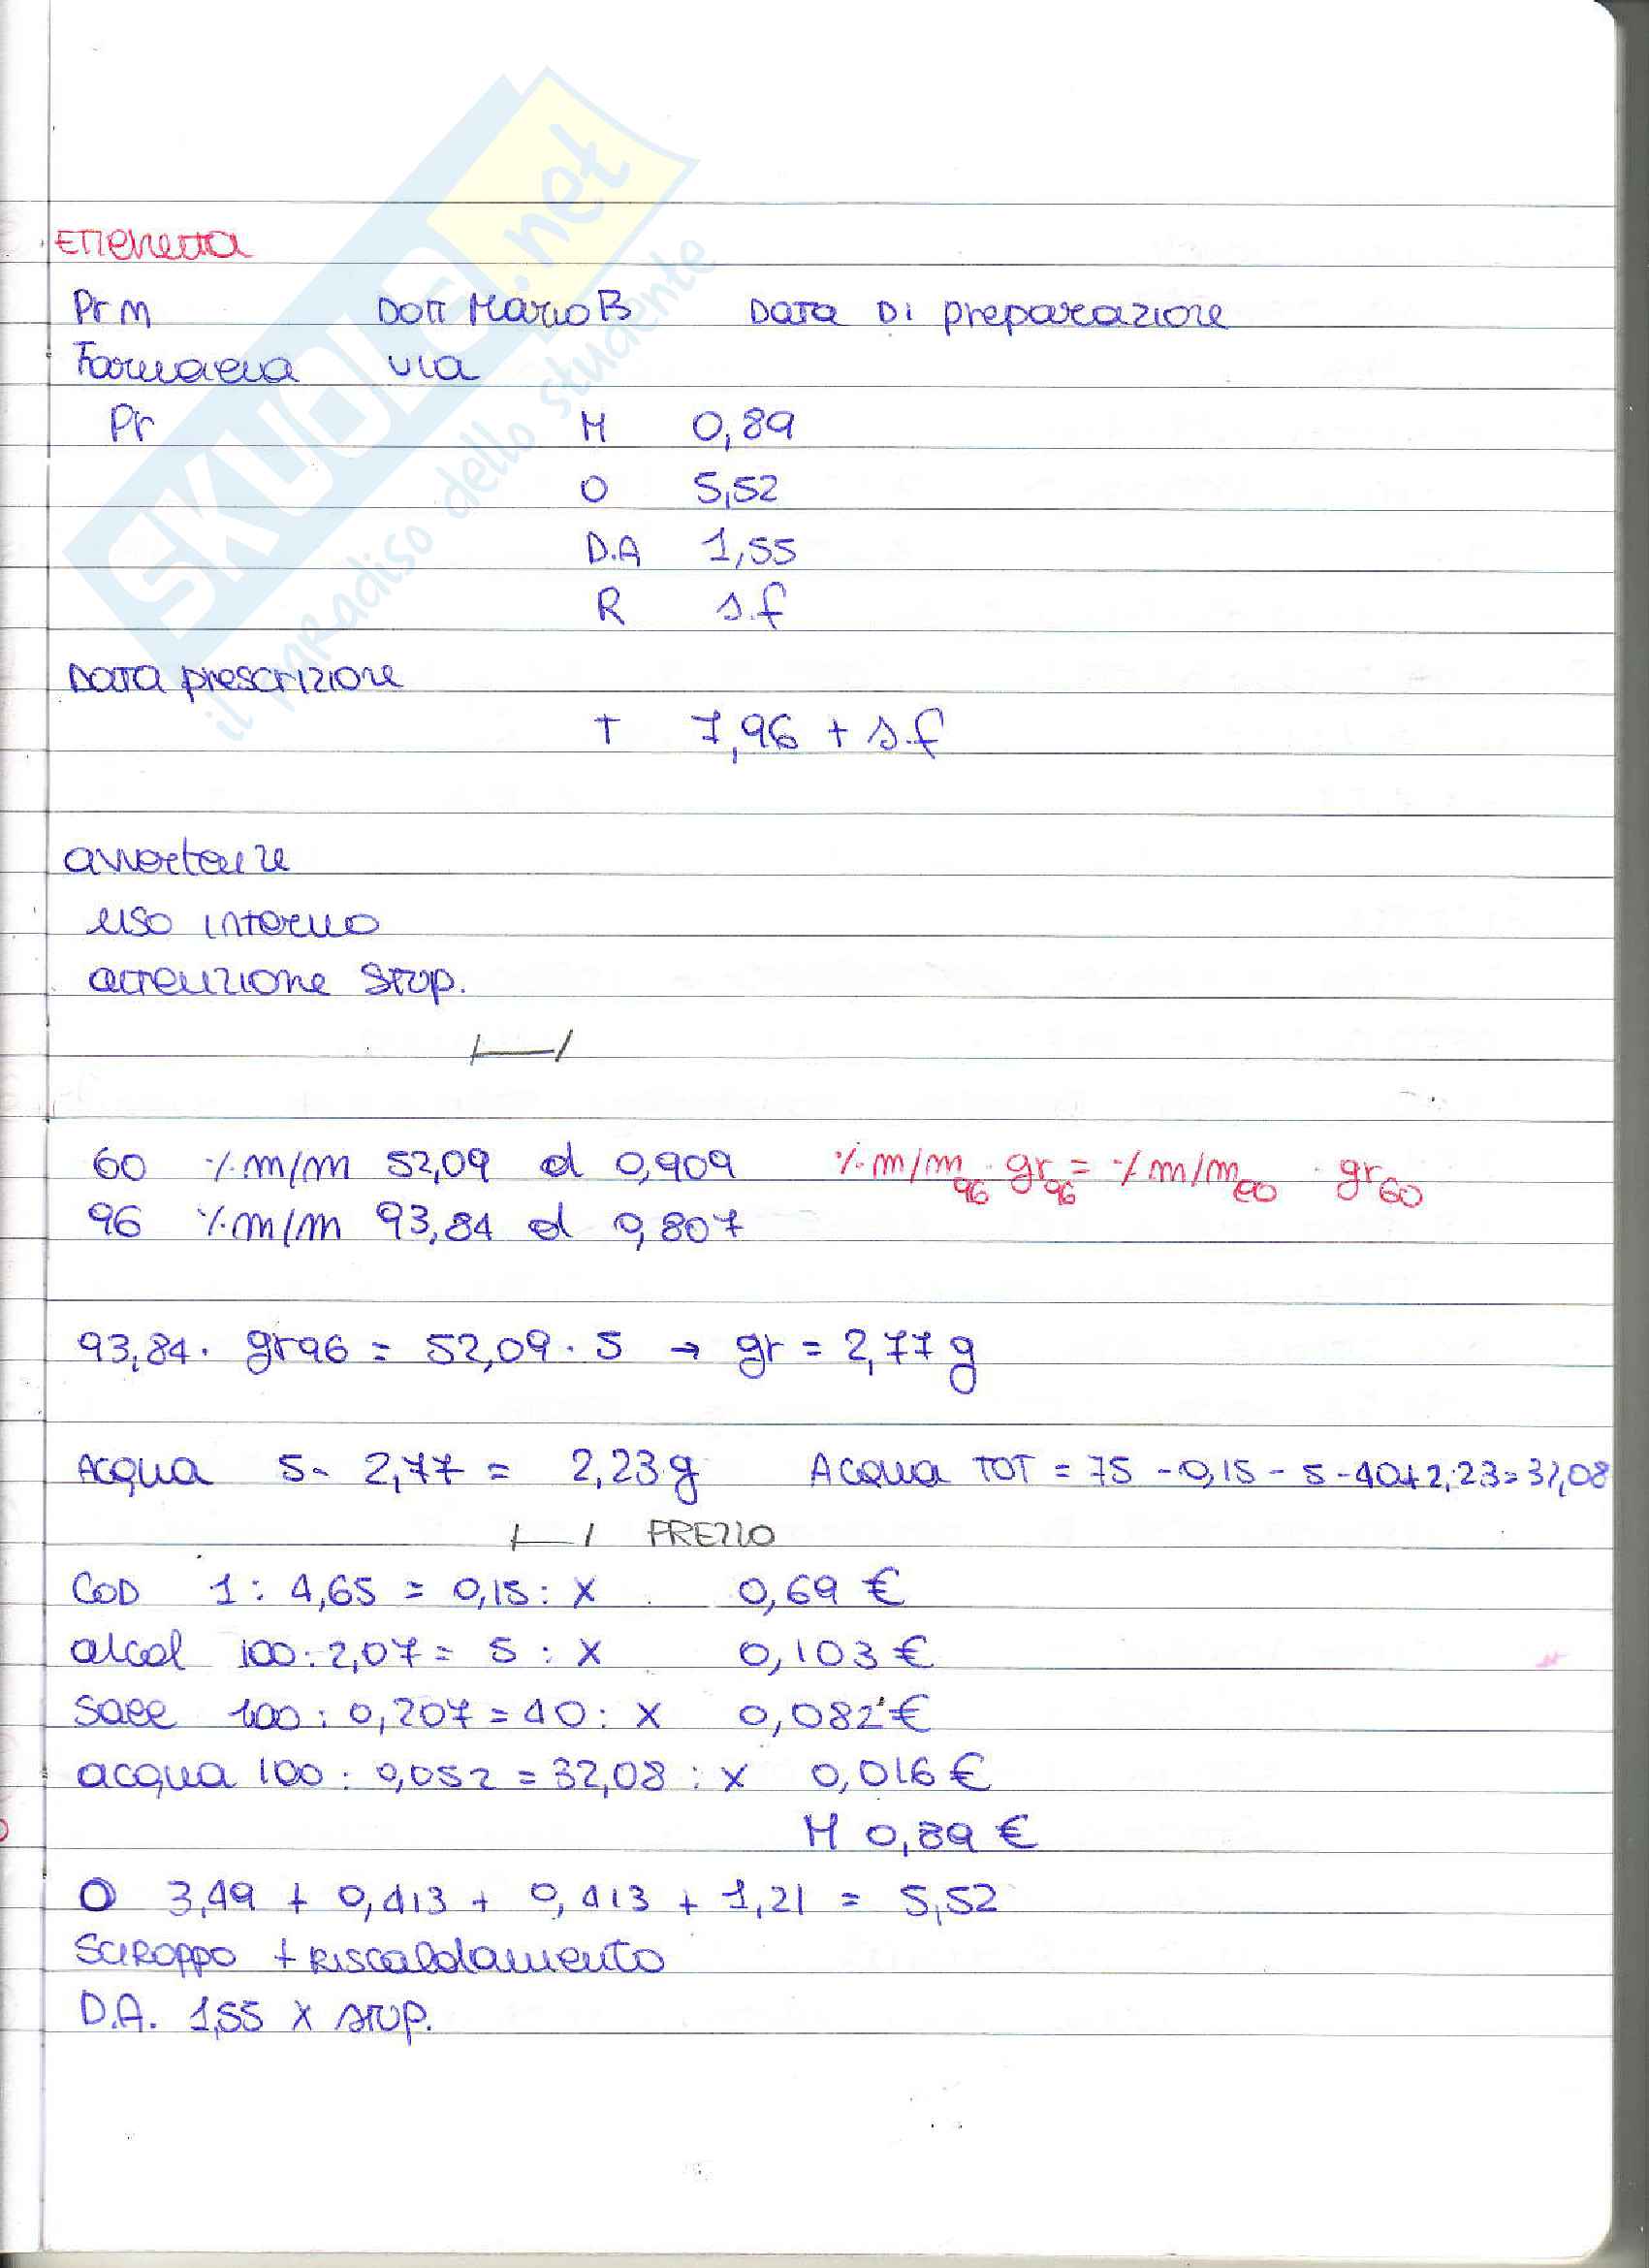 SKUOLA.net
il paradiso dello studente
Etichetta
Pr M Dott Mario B Data di preparazione
Farmacia via
Pr M 0,89
O 5,52
D.A 1,55
R s.f
Data prescrizione
T 7,96 + s.f
avvertenze
uso interno
attenzione stup.
60 % m/m 52,09 d 0,909 % m/m96 · gr96 = % m/m60 · gr60
96 % m/m 93,84 d 0,807
93,84 · gr96 = 52,09 · 5 → gr = 2,77 g
Acqua 5 - 2,77 = 2,23 g Acqua TOT = 75 - 0,15 - 5 - 40 + 2,23 = 32,08
PREZZO
COD 1 : 4,65 = 0,15 : x 0,69 €
alcol 100 : 2,07 = 5 : x 0,103 €
sacc 100 : 0,207 = 40 : x 0,082 €
acqua 100 : 0,052 = 32,08 : x 0,016 €
M 0,89 €
O 3,49 + 0,413 + 0,413 + 1,21 = 5,52
Sciroppo + riscaldamento
D.A. 1,55 x stup.